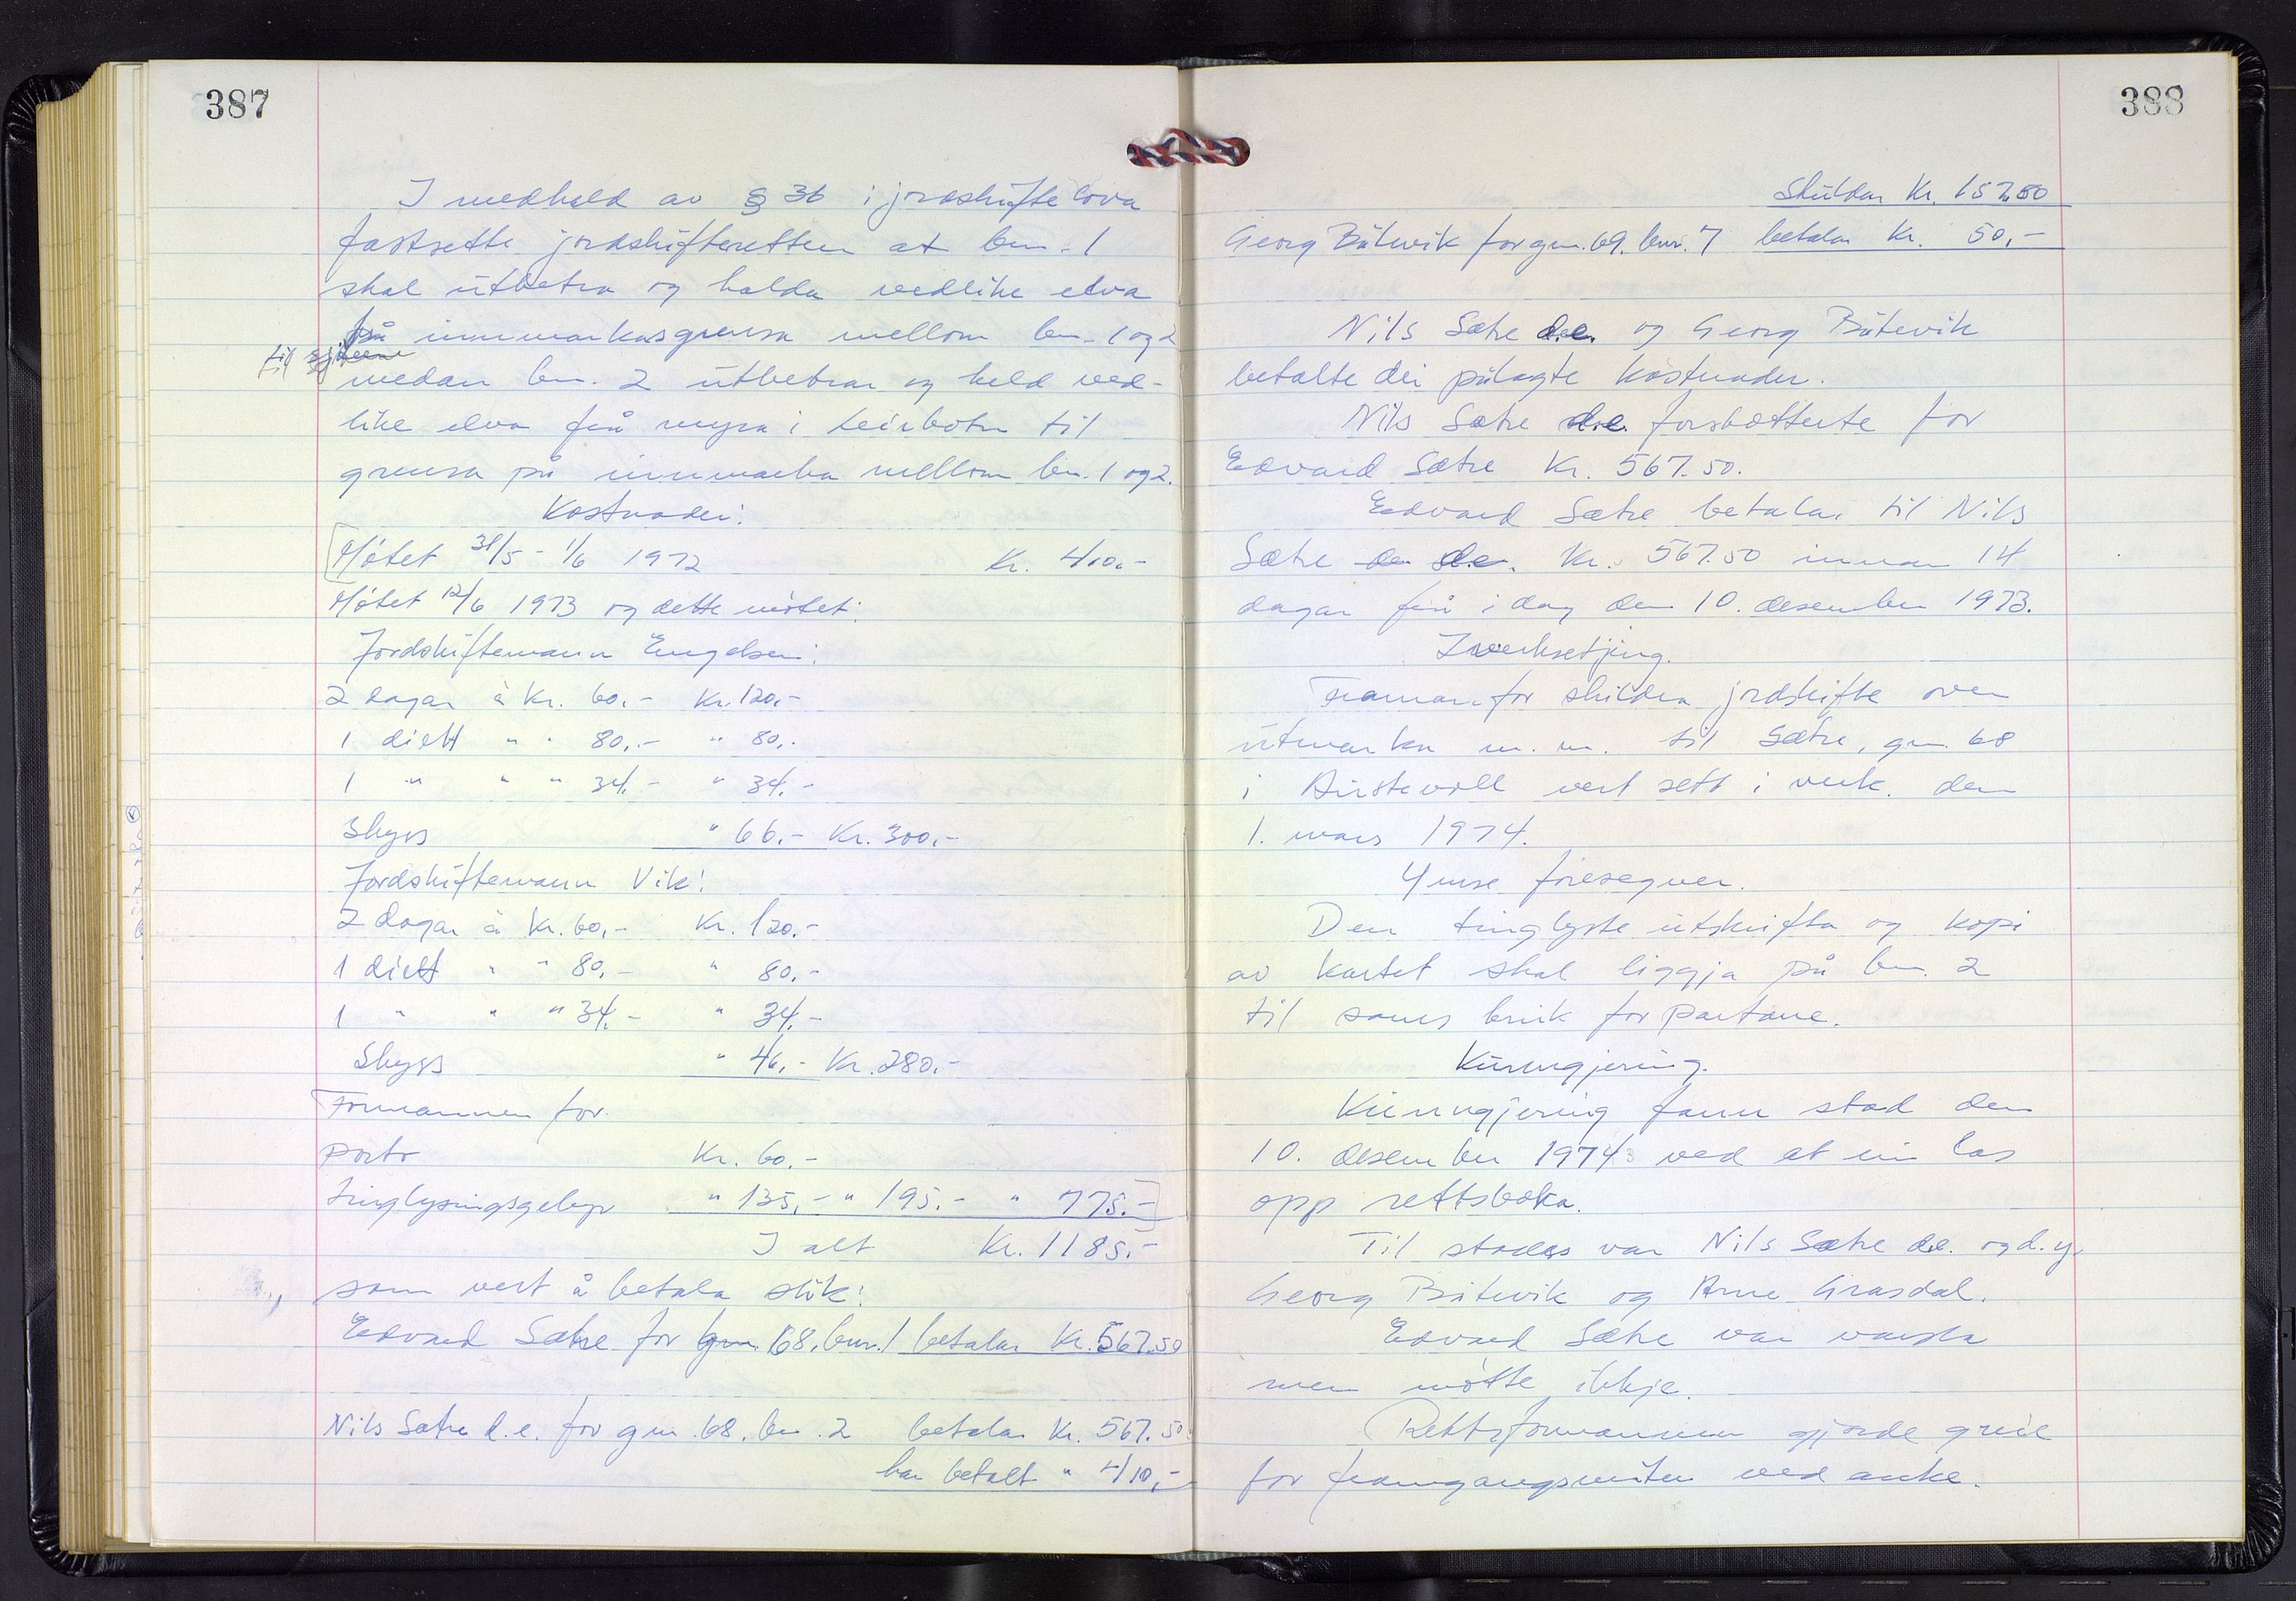 387
I medhald av § 36 i jordskiftelova
fastsette jordskifteretten at bnr. 1
skal utbetra og halda vedlike elva
frå innmarkasgrensa mellom bnr. 1 og 2
til sjøen
medan bnr. 2 utbetrar og held ved-
like elva frå myra i Leirbotn til
grensa på innmarka mellom bnr. 1 og 2.
Kostnader:
Møtet 31/5 - 1/6 1972 Kr. 410.-
Møtet 12/6 1973 og dette møtet:
Jordskiftemann Engelsen:
2 dagar à Kr. 60.- Kr. 120.-
1 diett " " 80,- " 80,-
1 " " " 34.- " 34.-
Skyss " 66.- Kr. 300.-
Jordskiftemann Vik:
2 dagar à Kr. 60,- Kr. 120.-
1 diett " " 80,- " 80,-
1 " " " 34.- " 34.-
Skyss " 46.- Kr. 280.-
Formannen for
porto Kr. 60.-
tinglysingsgebyr " 135,- " 195.- " 775.-
I alt Kr. 1185.-
som vert å betala slik:
Edvard Sætre for gnr. 68, bnr. 1 betalar Kr. 567.50
Nils Sætre d.e. for gnr. 68. bnr. 2 betalar Kr. 567.50
har betalt " 410,-
388
Skuldar Kr. 157,50
Georg Båtevik for gnr. 69. bnr. 7 betalar Kr. 50,-
Nils Sætre d.e. og Georg Båtevik
betalte dei pålagte kostnader.
Nils Sætre d.e. forskotterte for
Edvard Sætre Kr. 567.50.
Edvard Sætre betalar til Nils
Sætre d.e. Kr. 567.50 innan 14
dagar frå i dag den 10. desember 1973.
Iverksetjing.
Framanfor skildra jordskifte over
utmarka m.m. til Sætre, gnr. 68
i Austevoll vert sett i verk den
1. mars 1974.
Ymse føresegner.
Den tinglyste utskrifta og kopi
av kartet skal liggja på bnr. 2
til sams bruk for partane.
Kunngjering.
Kunngjering fann stad den
10. desember 1973 ved at ein las
opp rettsboka.
Til stades var Nils Sætre d.e. og d.y.
Georg Båtevik og Arne Grasdal.
Edvard Sætre var varsla
men møtte ikkje.
Rettsformannen gjorde greie
for framgangsmåten ved anke.